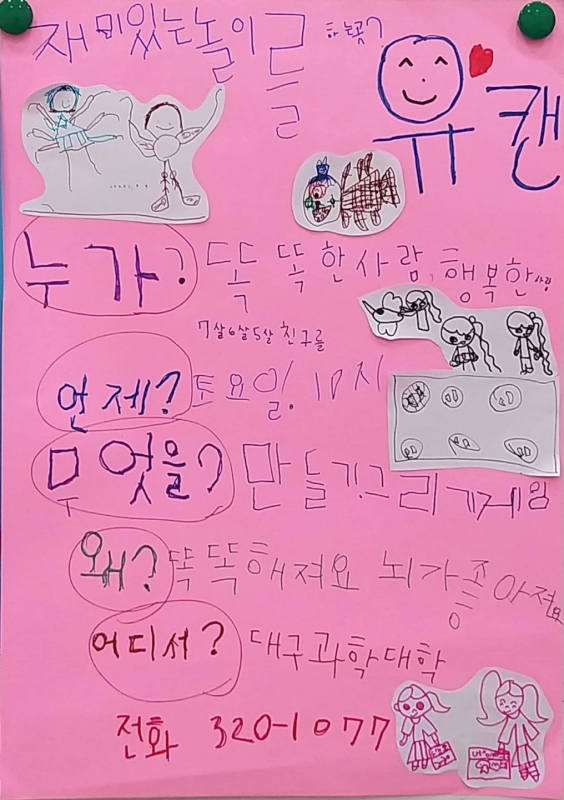 재미있는놀이를 하는곳?
유캔
누가? 똑똑한사람, 행복한사람
7살6살5살 친구를
언제? 토요일! 10시
무엇을? 만들기그리기게임
왜? 똑똑해져요 뇌가좋아져요
어디서? 대구과학대학
전화 320-1077